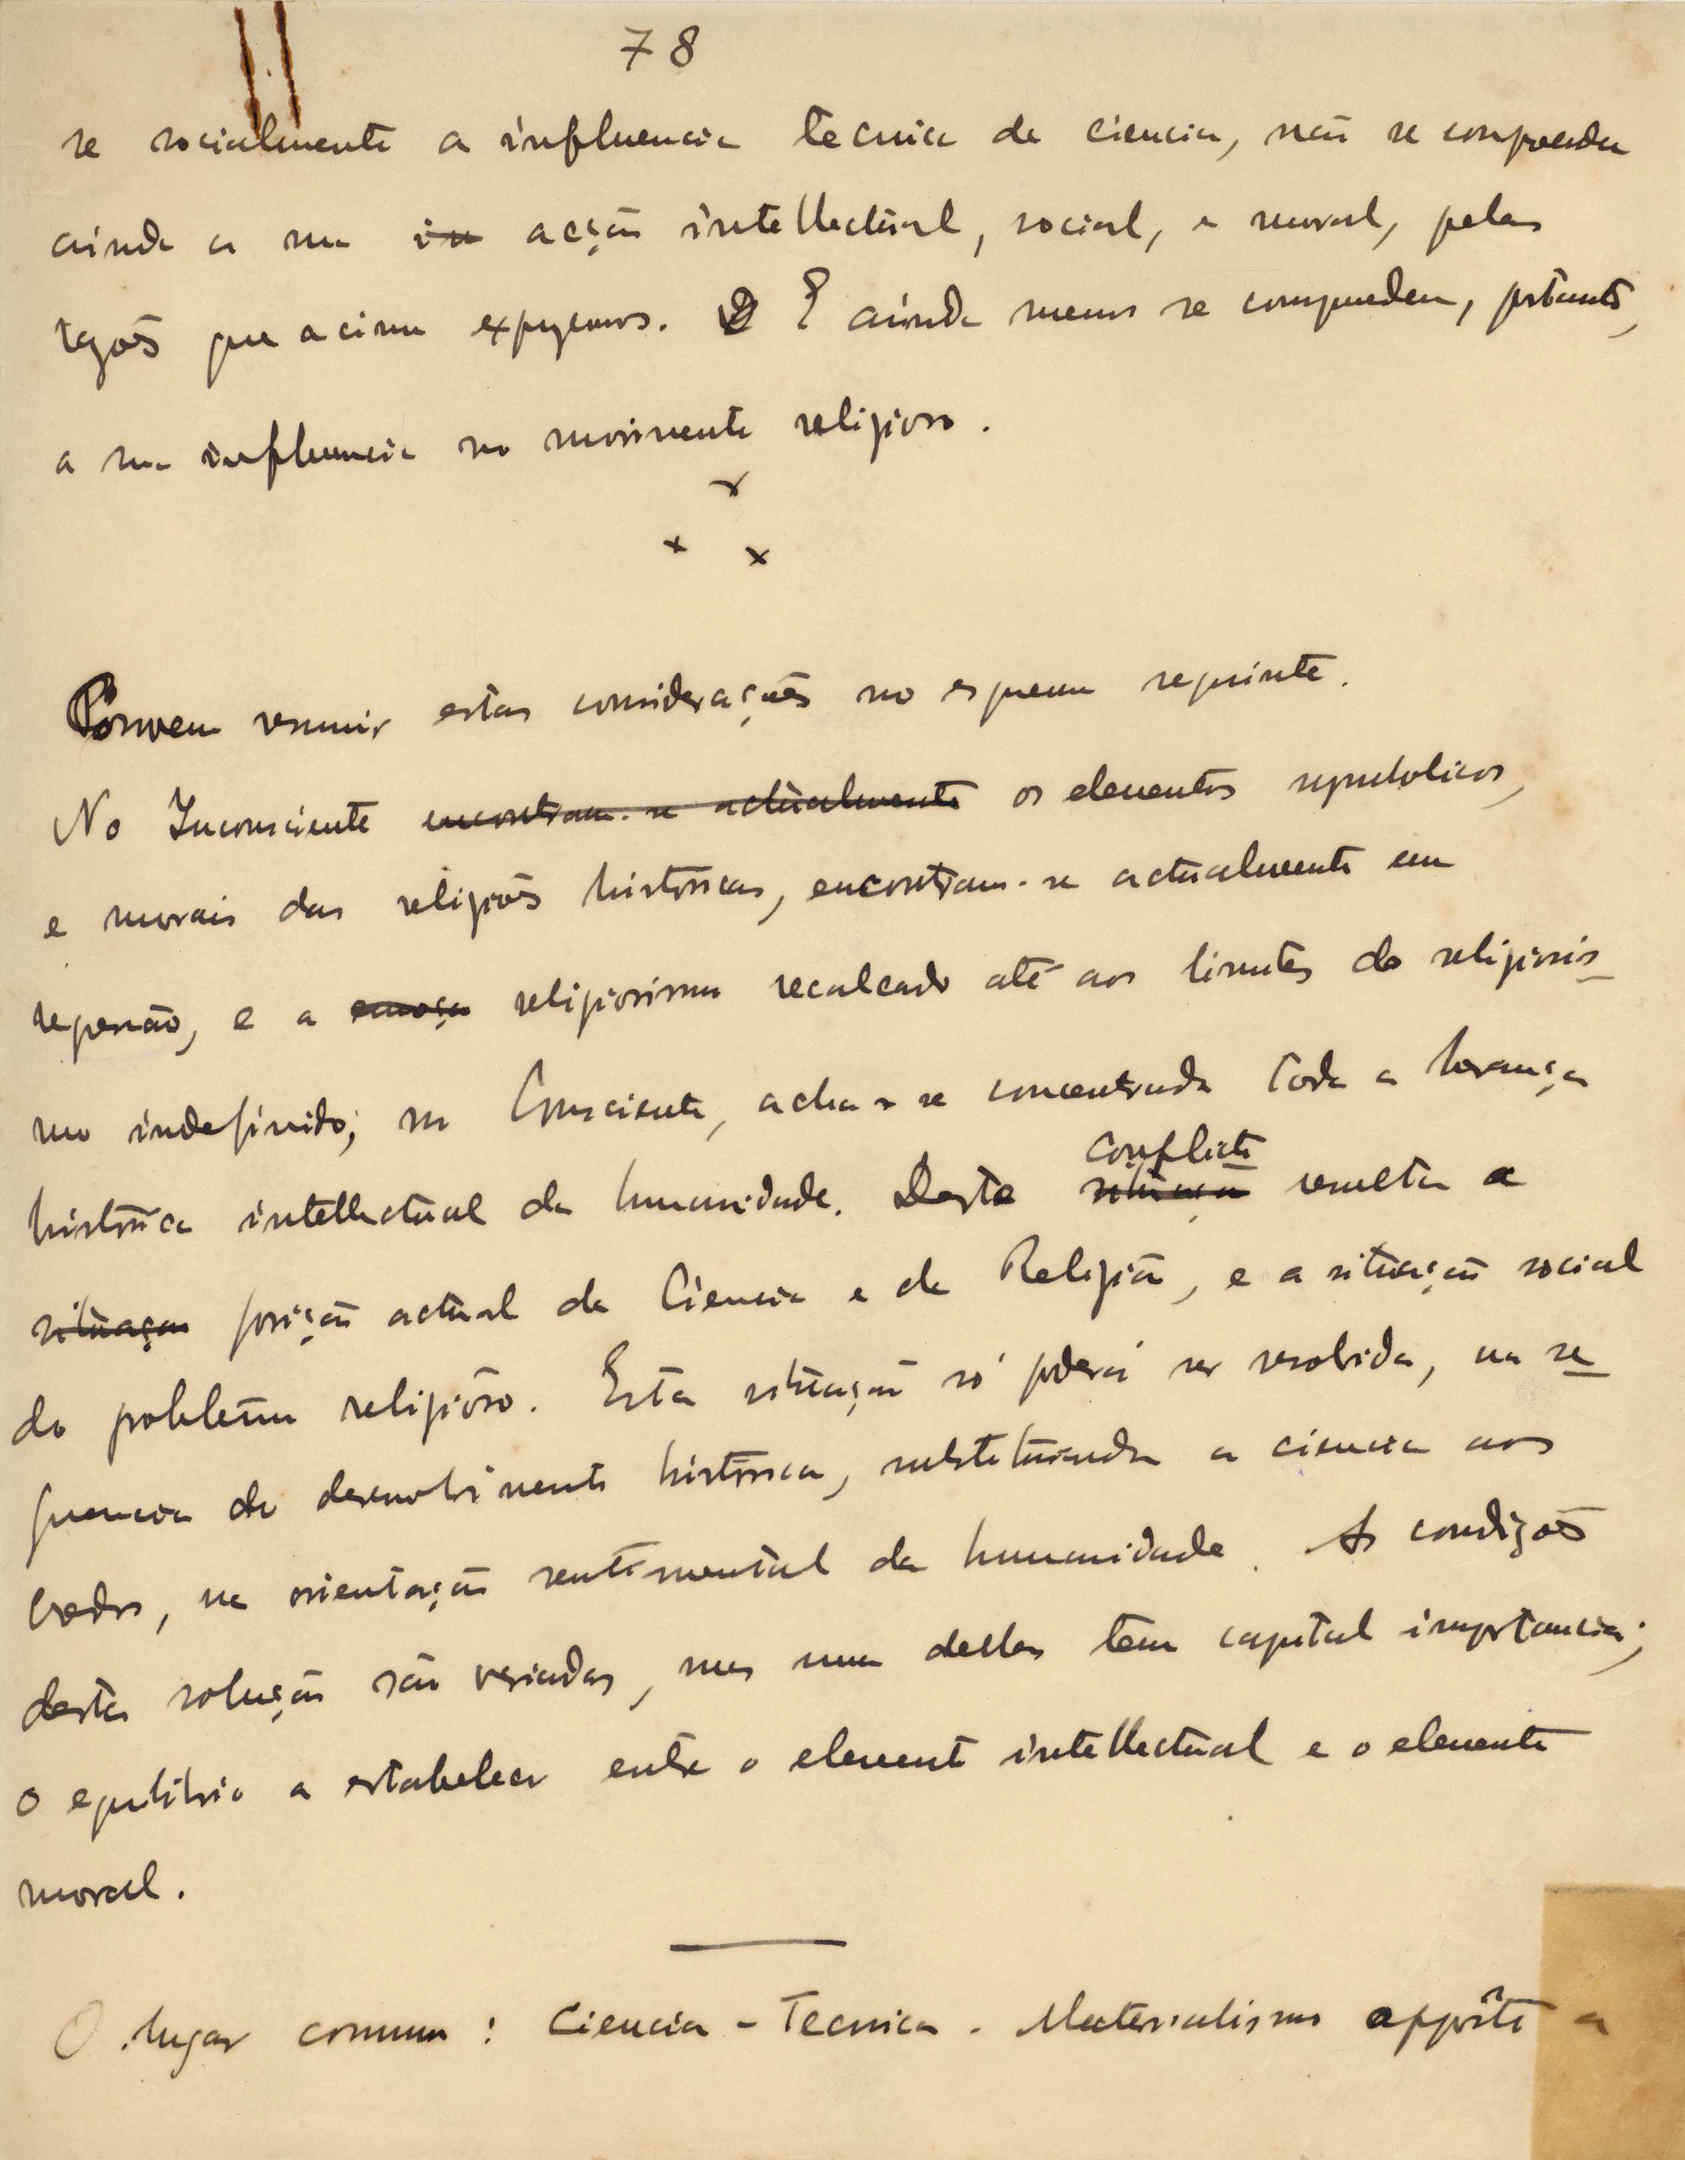 78
se socialmente a influencia tecnica da ciencia, não se comprehendeu
ainda a sua in acção intellectual, social, e moral, pelas
razões que acima expuzemos. E ainda menos se comprehendeu, portanto,
a sua influencia no movimento religioso.
x
x x
Convem resumir estas considerações no esquema seguinte.
No Inconsciente encontram-se actualmente os elementos symbolicos,
e morais das religiões históricas, encontram-se actualmente em
repressão, e a emoçã religiosismo recalcado até aos limites do religiosis-
mo indefinido; no Consciente, acha-se concentrada toda a herança
histórica intellectual da humanidade. Deste situaçã conflicto resulta a
situaçao posição actual da Ciencia e da Religião, e a situação social
do problema religioso. Esta situação só poderá ser resolvida, na se-
quencia do desenvolvimento histórico, substituindo a ciencia aos
credos, na orientação sentimental da humanidade. As condições
desta solução são variadas, mas uma dellas tem capital importancia;
o equilibrio a estabelecer entre o elemento intellectual e o elemento
moral.
O lugar comum: Ciencia - Tecnica - Materialismo opposto a